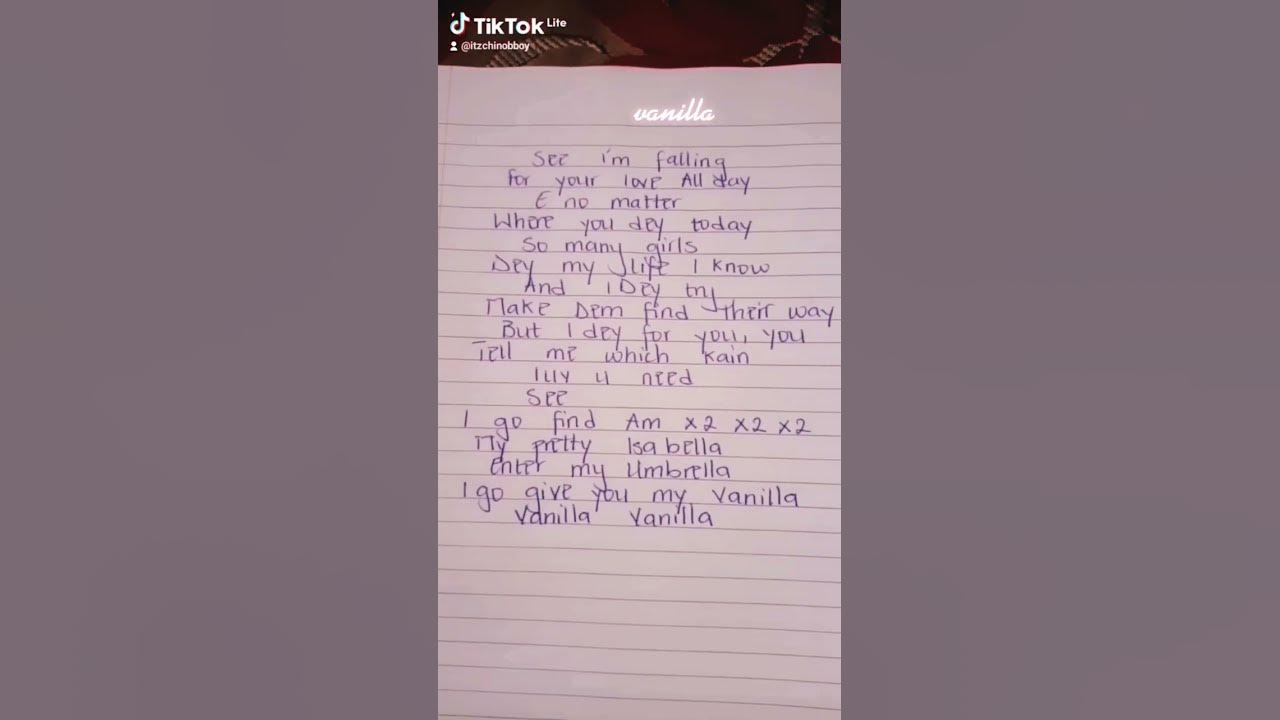 TikTok Lite
@itzchinobboy
vanilla
See i'm falling
for your love All day
E no matter
Where you dey today
So many girls
Dey my life I know
And I Dey try
Make Dem find their way
But I dey for you, you
Tell me which kain
luv u need
See
I go find Am x2 x2 x2
My pretty Isabella
enter my Umbrella
I go give you my Vanilla
Vanilla Vanilla